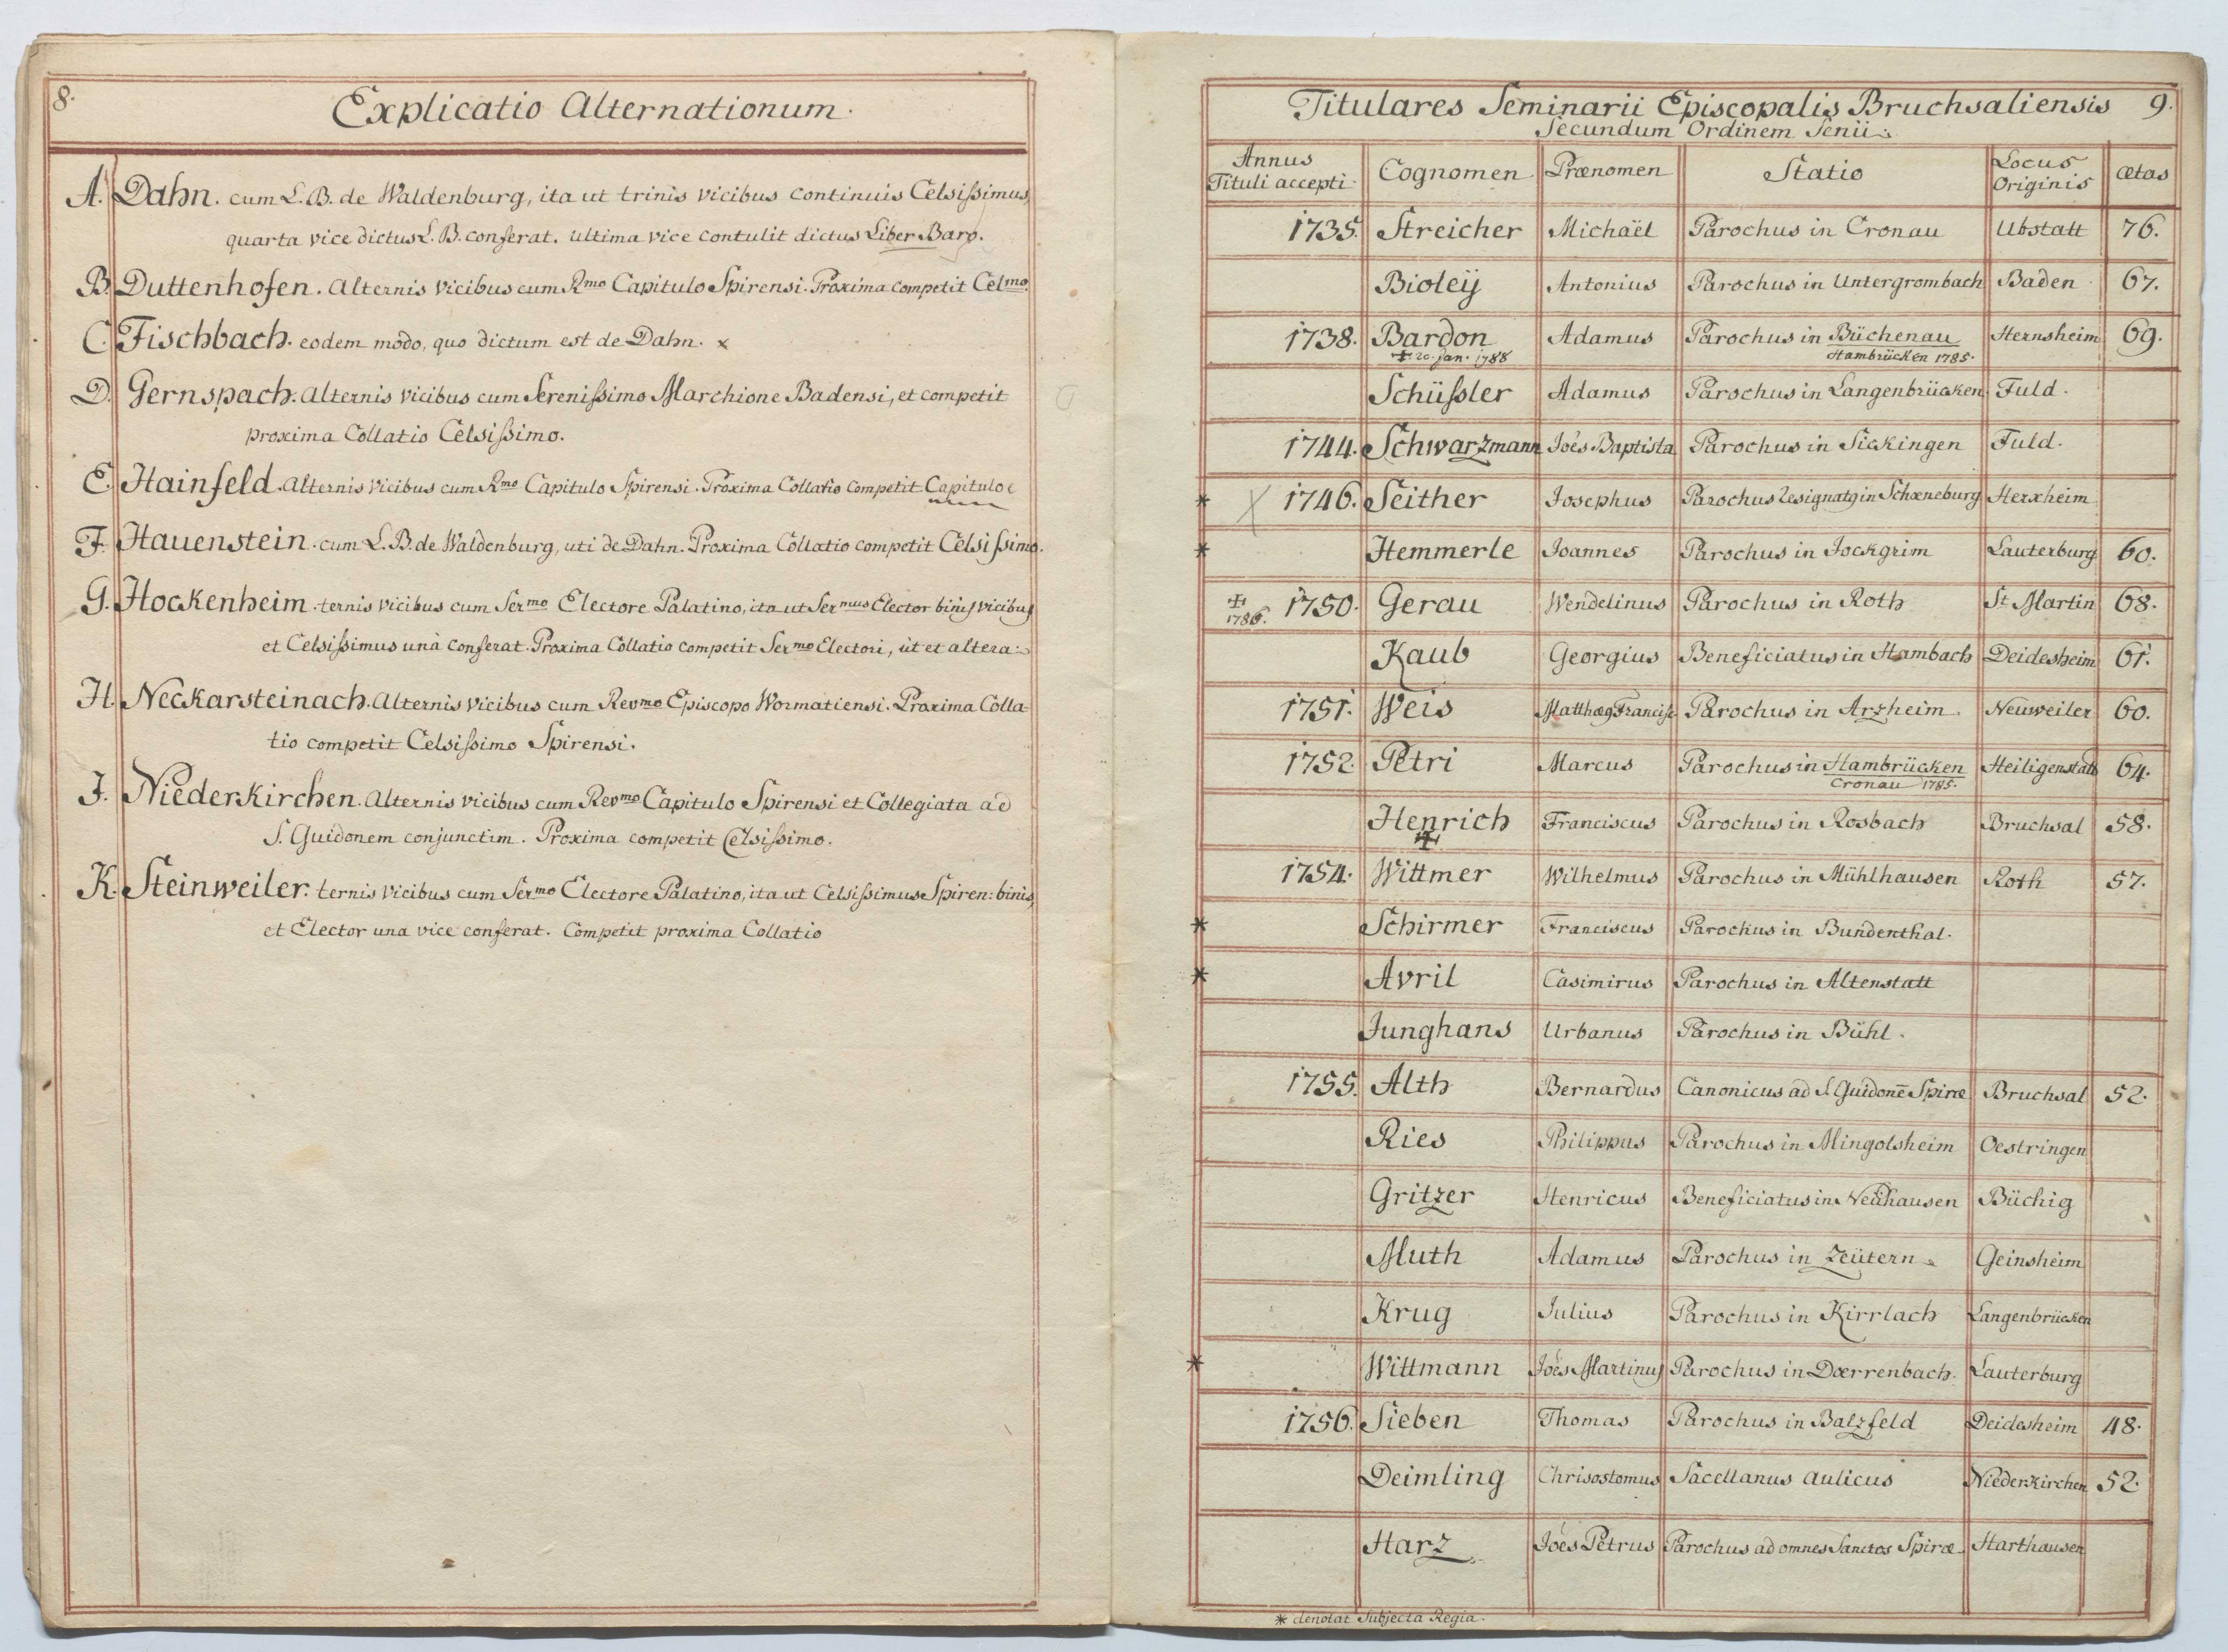 8.
Explicatio Alternationum.
A. Dahn. cum L. B. de Waldenburg, ita ut trinis vicibus continuis Celsissimus,
quarta vice dictus L. B. conferat. ultima vice contulit dictus Liber Baro.
B. Duttenhofen. Alternis vicibus cum Rmo Capitulo Spirensi. Proxima competit Celmo.
C. Fischbach. eodem modo, quo dictum est de Dahn. x
D. Gernspach. Alternis vicibus cum Serenissimo Marchione Badensi, et competit
proxima Collatio Celsissimo.
E. Hainfeld. Alternis vicibus cum Rmo Capitulo Spirensi. Proxima Collatio competit Capitulo
F. Hauenstein. cum L. B. de Waldenburg, uti de Dahn. Proxima Collatio competit Celsissimo.
G. Hockenheim. ternis vicibus cum Sermo Electore Palatino, ita ut Sermus Elector binis vicibus
et Celsissimus unà conferat. Proxima Collatio competit Sermo Electori, ut et altera.
H. Neckarsteinach. Alternis vicibus cum Revmo Episcopo Wormatiensi. Proxima Colla-
tio competit Celsissimo Spirensi.
J. Niederkirchen. Alternis vicibus cum Revmo Capitulo Spirensi et Collegiata ad
S. Guidonem conjunctim. Proxima competit Celsissimo.
K. Steinweiler. ternis vicibus cum Sermo Electore Palatino, ita ut Celsissimus Spiren: binis,
et Elector una vice conferat. Competit proxima Collatio
Titulares Seminarii Episcopalis Bruchsaliensis 9.
Secundum Ordinem Senii.
Annus Tituli accepti Cognomen Prænomen Statio Locus Originis ætas
1735. Streicher Michaël Parochus in Cronau Ubstatt 76.
Bioleÿ Antonius Parochus in Untergrombach Baden 67.
1738. Bardon Adamus Parochus in Büchenau Hernsheim 69.
✝ 20. Jan. 1788 Hambrücken 1785.
Schüssler Adamus Parochus in Langenbrücken Fuld.
1744. Schwarzmann Joës Baptista Parochus in Sickingen Fuld.
* X 1746. Seither Josephus Parochus resignatg in Schœneburg Herxheim
* Hemmerle Joannes Parochus in Jockgrim Lauterburg 60.
✝ 1786. 1750. Gerau Wendelinus Parochus in Roth St Martin 68.
Kaub Georgius Beneficiatus in Hambach Deidesheim 61.
1751. Weis Matthæg Francisc Parochus in Arzheim Neuweiler 60.
1752. Petri Marcus Parochus in Hambrücken Heiligenstatt 64.
Cronau 1785.
Henrich Franciscus Parochus in Rosbach Bruchsal 58.
✝
1754. Wittmer Wilhelmus Parochus in Mühlhausen Roth 57.
* Schirmer Franciscus Parochus in Bundenthal.
* Avril Casimirus Parochus in Altenstatt
Junghans Urbanus Parochus in Bühl.
1755. Alth Bernardus Canonicus ad S. Guidonē Spiræ Bruchsal 52.
Ries Philippus Parochus in Mingolsheim Oestringen
Gritzer Henricus Beneficiatus in Neühausen Büchig
Muth Adamus Parochus in Zeütern Geinsheim
Krug Julius Parochus in Kirrlach Langenbrücken
* Wittmann Joës Martinus Parochus in Dœrrenbach. Lauterburg
1756. Sieben Thomas Parochus in Balzfeld Deidesheim 48.
Deimling Chrisostomus Sacellanus Aulicus Niederkirchen 52.
Harz Joës Petrus Parochus ad omnes Sanctos Spiræ Harthausen
* denotat Subjecta Regia.